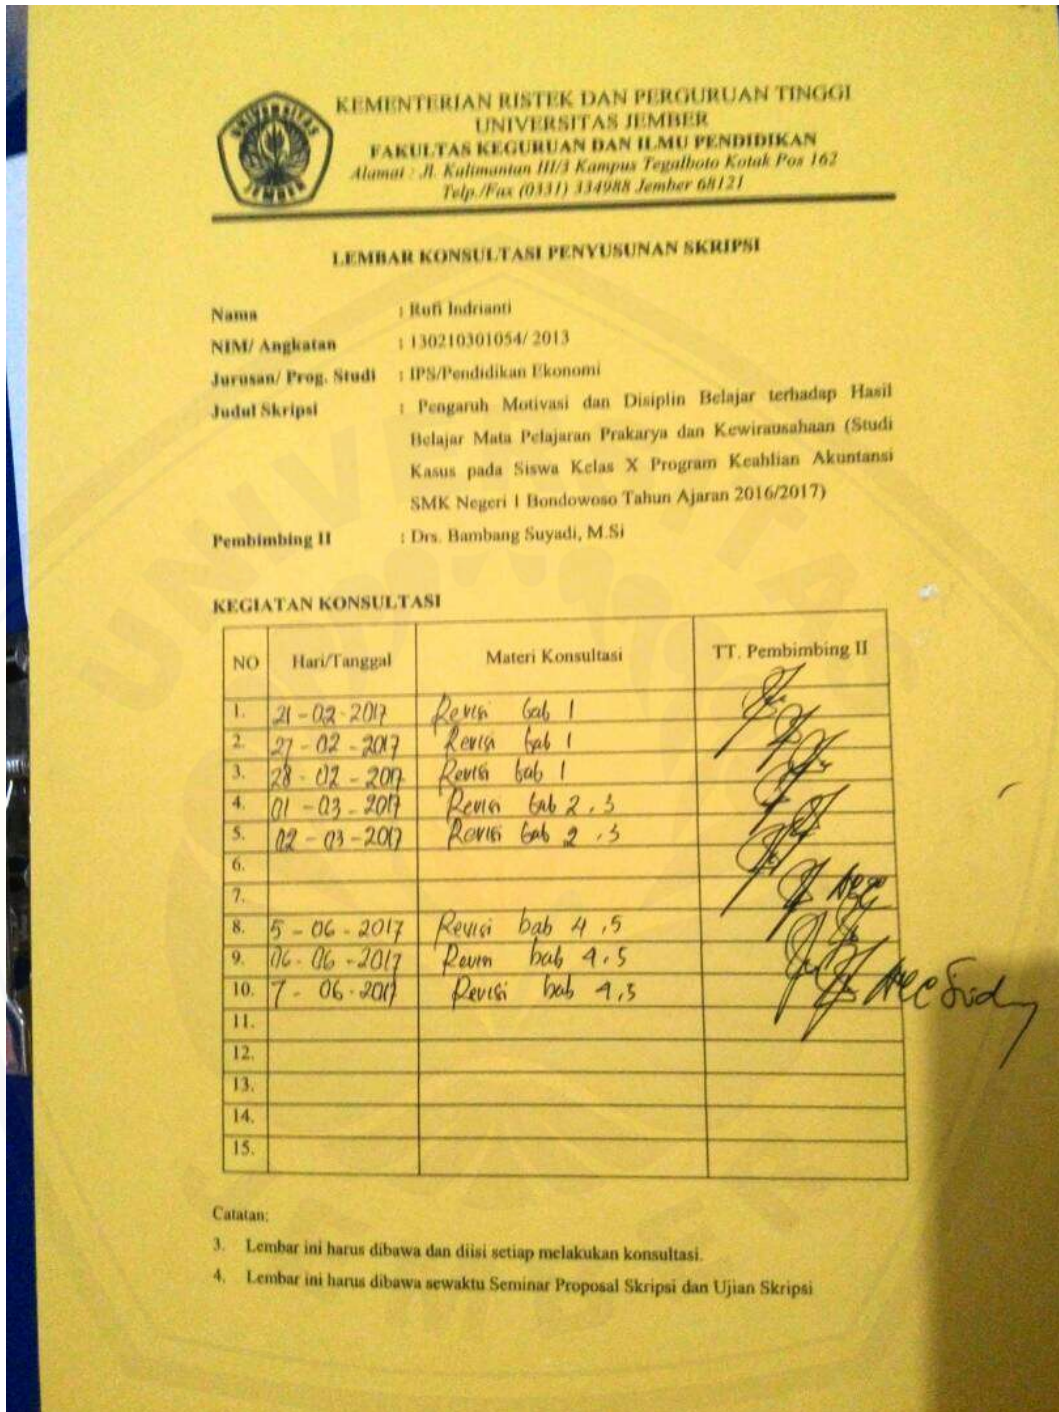 UNIVERSITAS
JEMBER
KEMENTERIAN RISTEK DAN PERGURUAN TINGGI
UNIVERSITAS JEMBER
FAKULTAS KEGURUAN DAN ILMU PENDIDIKAN
Alamat : Jl. Kalimantan III/3 Kampus Tegalboto Kotak Pos 162
Telp./Fax (0331) 334988 Jember 68121
LEMBAR KONSULTASI PENYUSUNAN SKRIPSI
Nama : Rufi Indrianti
NIM/ Angkatan : 130210301054/ 2013
Jurusan/ Prog. Studi : IPS/Pendidikan Ekonomi
Judul Skripsi : Pengaruh Motivasi dan Disiplin Belajar terhadap Hasil
Belajar Mata Pelajaran Prakarya dan Kewirausahaan (Studi
Kasus pada Siswa Kelas X Program Keahlian Akuntansi
SMK Negeri 1 Bondowoso Tahun Ajaran 2016/2017)
Pembimbing II : Drs. Bambang Suyadi, M.Si
KEGIATAN KONSULTASI
NO Hari/Tanggal Materi Konsultasi TT. Pembimbing II
1. 21-02-2017 Revisi bab 1
2. 27-02-2017 Revisi bab 1
3. 28-02-2017 Revisi bab 1
4. 01-03-2017 Revisi bab 2,3
5. 02-03-2017 Revisi bab 2,3
6.
7.
8. 5-06-2017 Revisi bab 4,5
9. 06-06-2017 Revisi bab 4,5
10. 7-06-2017 Revisi bab 4,5
11.
12.
13.
14.
15.
Catatan:
3. Lembar ini harus dibawa dan diisi setiap melakukan konsultasi.
4. Lembar ini harus dibawa sewaktu Seminar Proposal Skripsi dan Ujian Skripsi